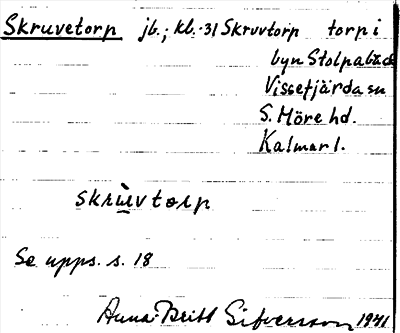 Skruvetorp jb.; kl.-31 Skruvtorp torp i
byn Stolpabäck
Vissefjärda sn
S. Möre hd.
Kalmar l.
skrùvtorp
Se upps. s. 18
Anna-Britt Sifversson 1941